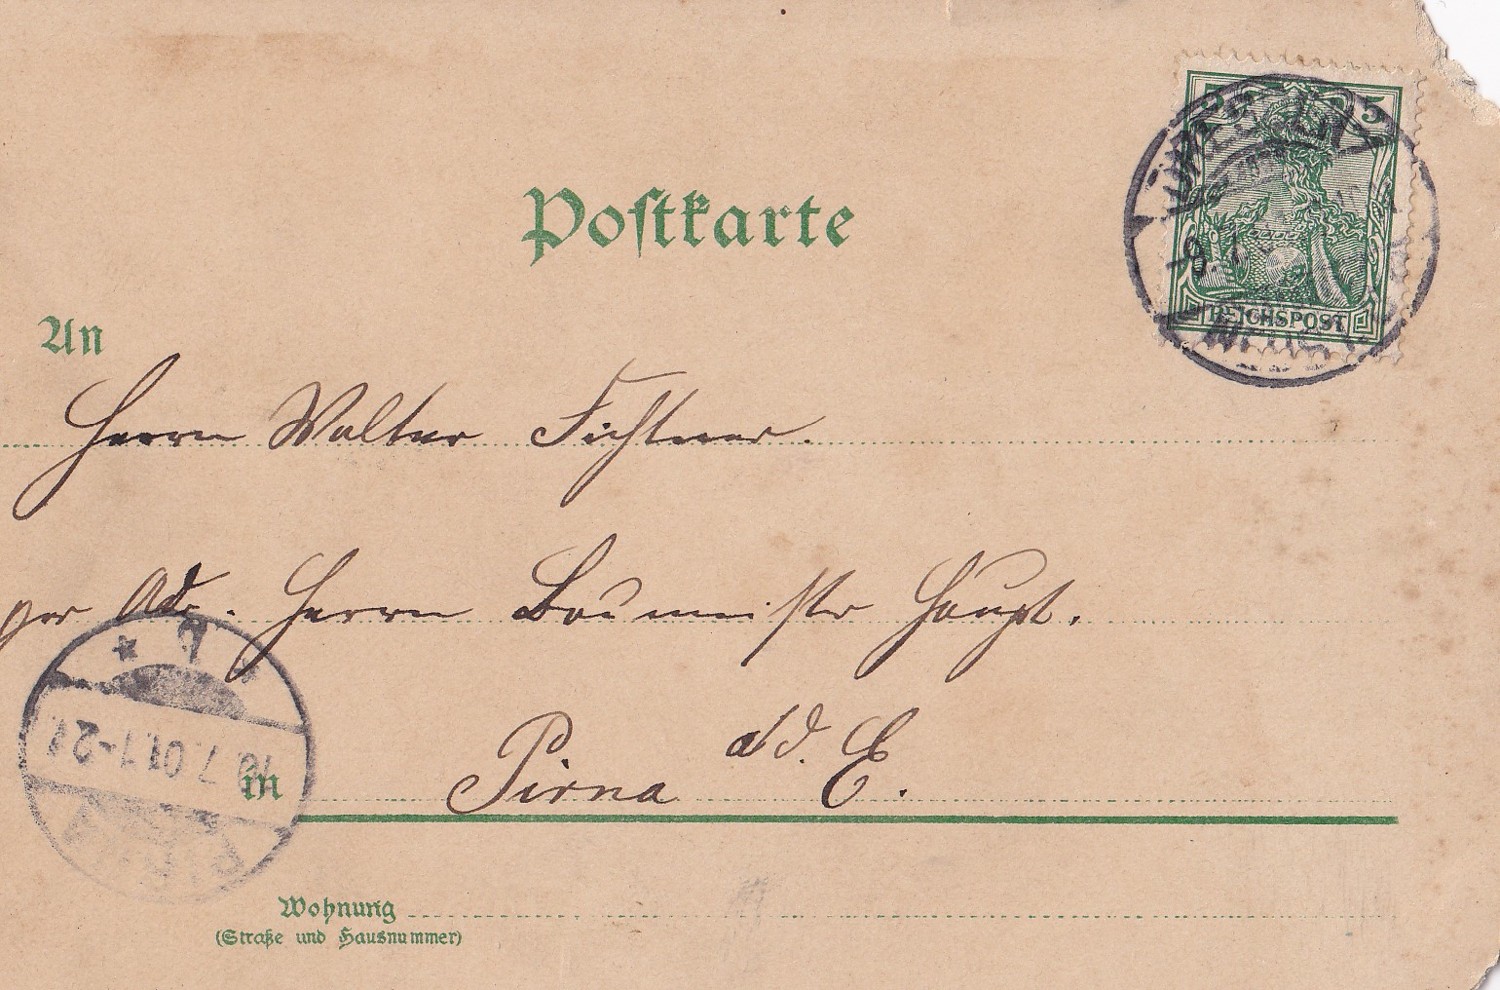 Postkarte
5
REICHSPOST
An
Herrn Walter Fichtner.
per Adr. Herrn Baumeister Haupt.
in Pirna a/d. E.
10.7.01.1-2
Wohnung
(Straße und Hausnummer)